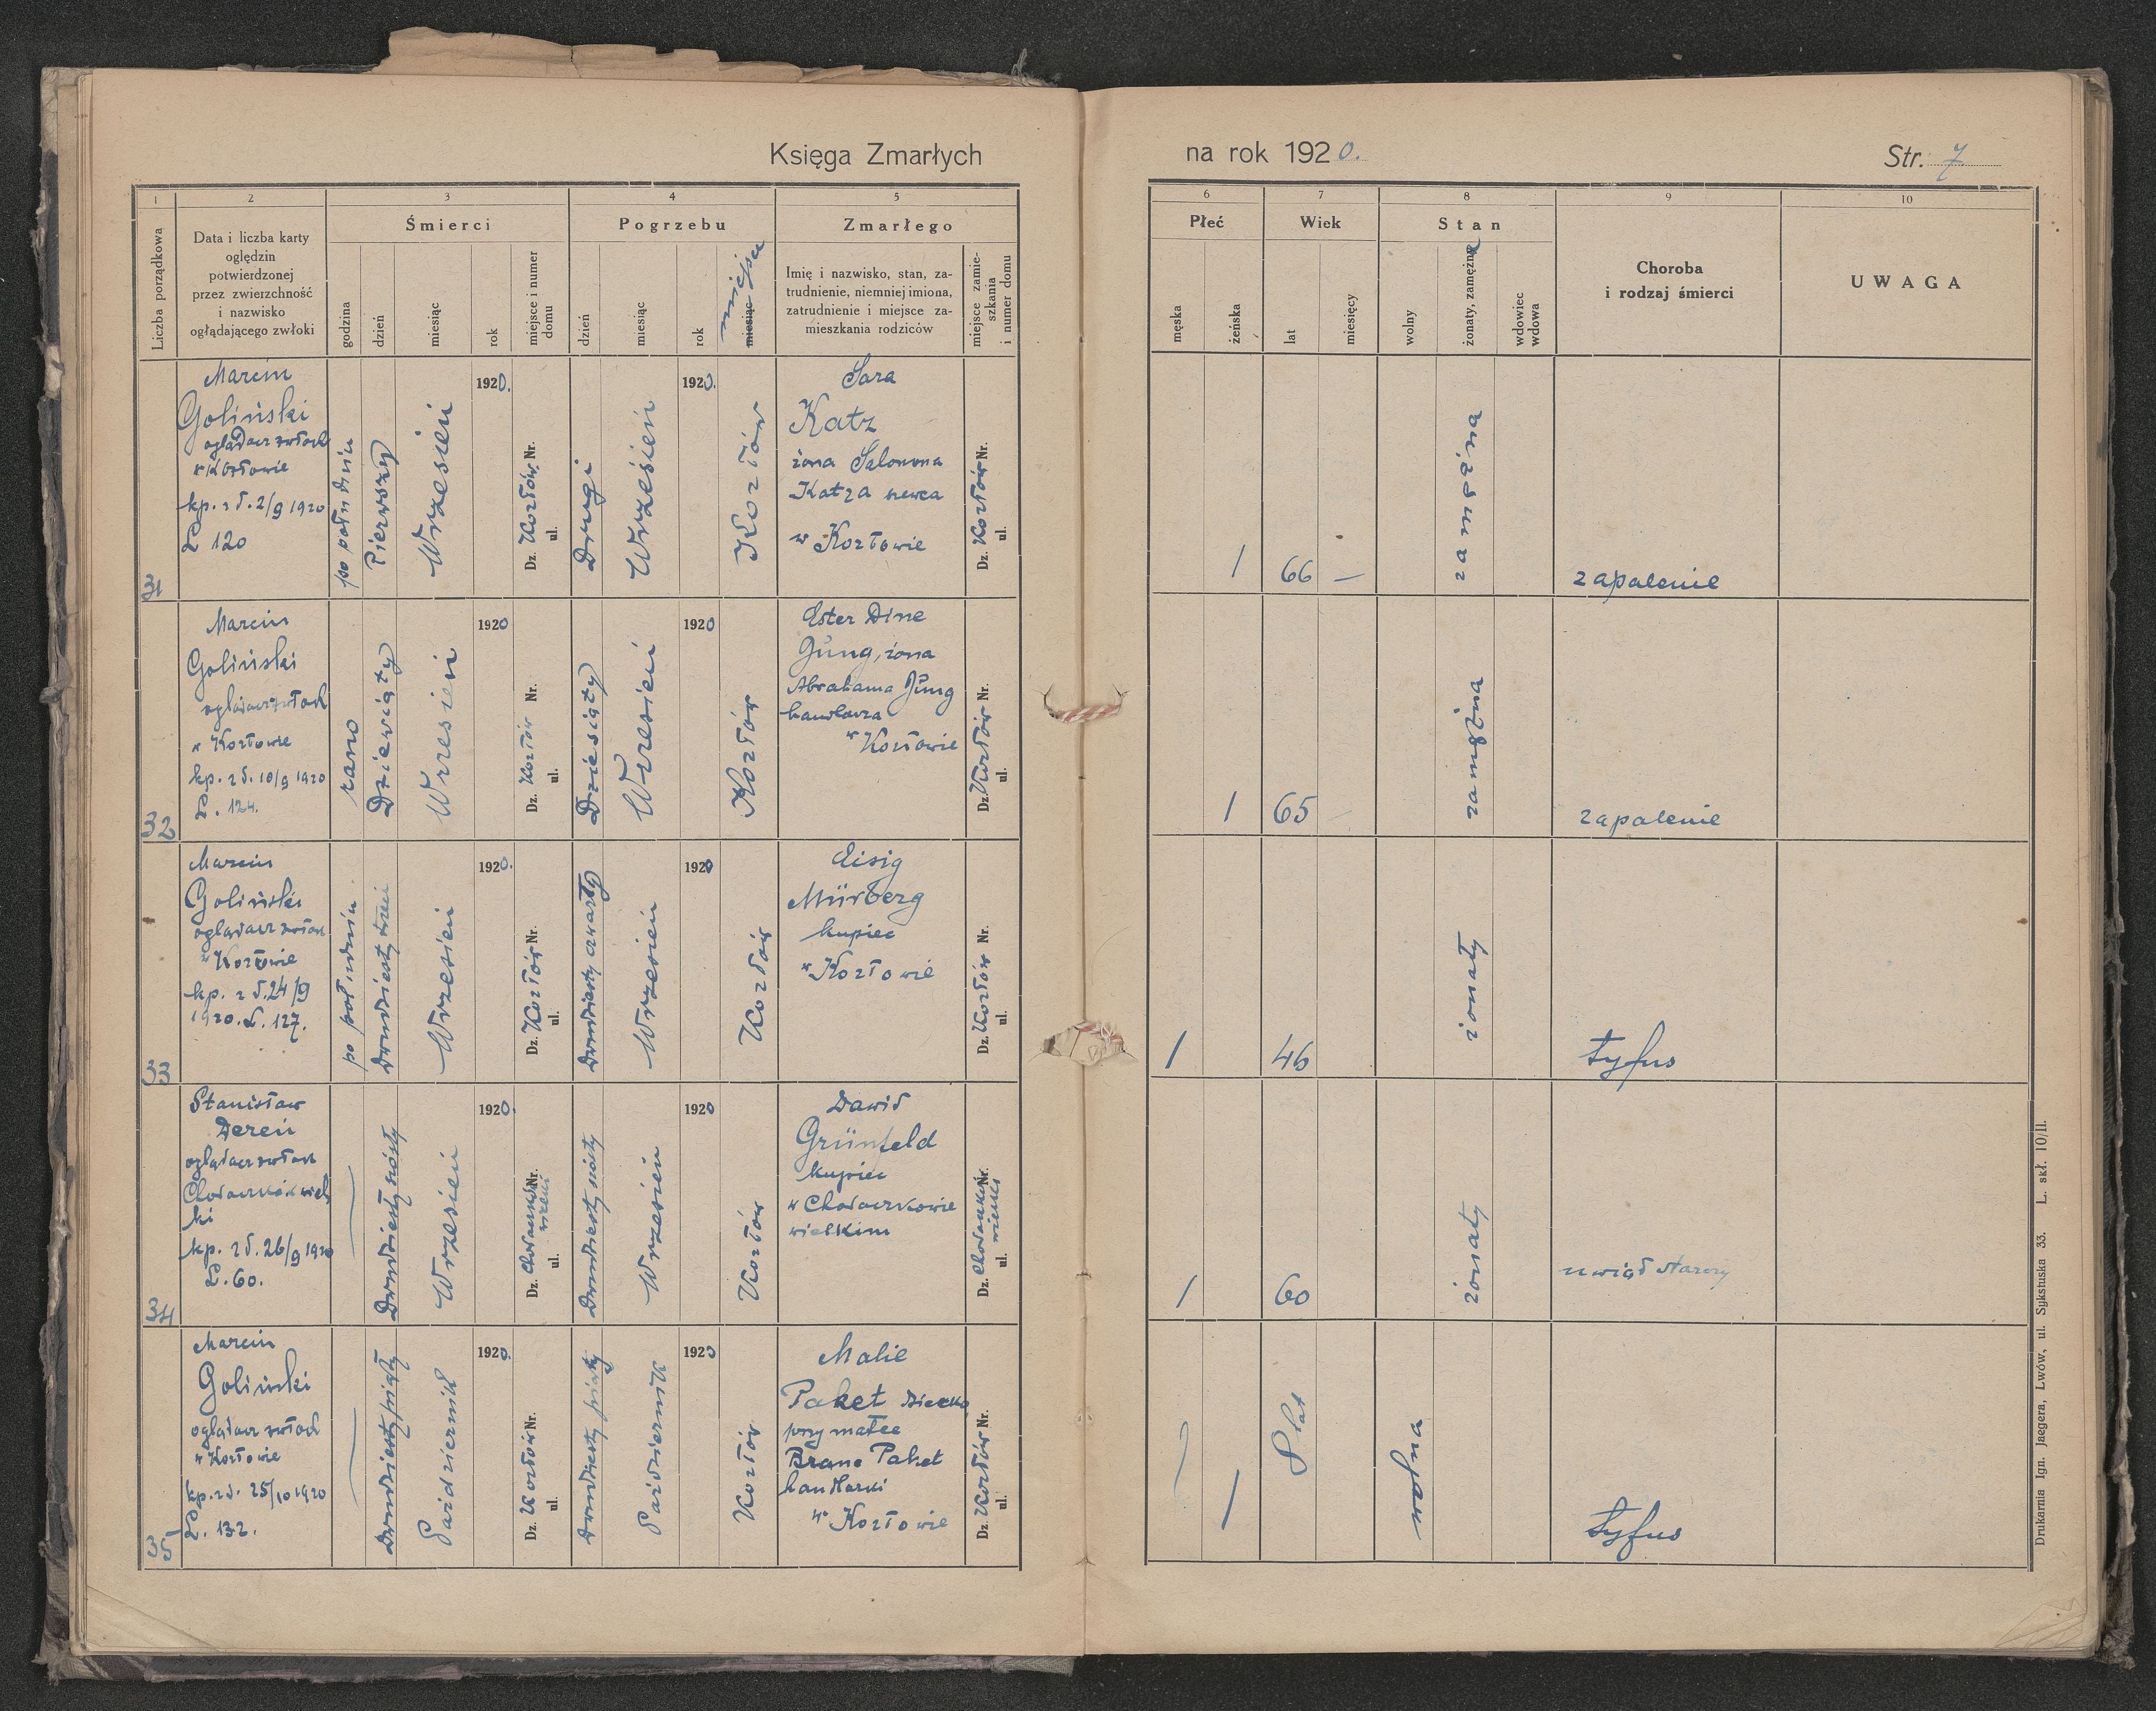 Księga Zmarłych
na rok 1920.
Str. 7
1
2
3
4
5
6
7
8
9
10
Liczba porządkowa
Data i liczba karty
oględzin
potwierdzonej
przez zwierzchność
i nazwisko
oglądającego zwłoki
Śmierci
godzina
dzień
miesiąc
rok
miejsce i numer
domu
Pogrzebu
dzień
miesiąc
rok
miesiąc
miejsce
Zmarłego
Imię i nazwisko, stan, za-
trudnienie, niemniej imiona,
zatrudnienie i miejsce za-
mieszkania rodziców
miejsce zamie-
szkania
i numer domu
Płeć
męska
żeńska
Wiek
lat
miesięcy
Stan
wolny
żonaty, zamężna
wdowiec
wdowa
Choroba
i rodzaj śmierci
UWAGA
31
Marcin
Goliński
oglądacz zwłok
w Kozłowie
kp. z d. 2/9 1920
L 120
po połudn​iu
Pierwszy
Wrzesień
1920.
Dz. Kozłów Nr.
ul.
Drugi
Wrzesień
1920.
Kozłów
Sara
Katz
żona Salomona
Katza szewca
w Kozłowie
Dz. Kozłów Nr.
ul.
1
66
—
zamężna
zapalenie
32
Marcin
Goliński
oglądacz zwłok
w Kozłowie
kp. z d. 10/9 1920
L. 124.
rano
Dziewiąty
Wrzesień
1920
Dz. Kozłów Nr.
ul.
Dziesiąty
Wrzesień
1920
Kozłów
Ester Dine
Jung, żona
Abrahama Jung
handlarza
w Kozłowie
Dz. Kozłów Nr.
ul.
1
65
—
zamężna
zapalenie
33
Marcin
Goliński
oglądacz zwłok
w Kozłowie
kp. z d. 24/9
1920. L. 127.
po południu
Dwudziesty trzeci
Wrzesień
1920.
Dz. Kozłów Nr.
ul.
Dwudziesty czwarty
Wrzesień
1920
Kozłów
Eisig
Mürberg
kupiec
w Kozłowie
Dz. Kozłów Nr.
ul.
1
46
żonaty
tyfus
34
Stanisław
Dereń
oglądacz zwłok
Chodaczków wiel
ki
kp. z d. 26/9 1920
L. 60.
Dwudziesty szósty
Wrzesień
1920.
Dz. Chodaczków Nr.
wielki
ul.
Dwudziesty szósty
Wrzesień
1920
Kozłów
Dawid
Grünfeld
kupiec
w Chodaczkowie
wielkim
Dz. Chodaczków Nr.
wielki
ul.
1
60
żonaty
uwiąd starczy
35
Marcin
Goliński
oglądacz zwłok
w Kozłowie
kp. z d. 25/10 1920
L. 132.
Dwudziesty piąty
Październik
1920.
Dz. Kozłów Nr.
ul.
Dwudziesty piąty
Październik
1920
Kozłów
Malie
Paket dziecko
przy matce
Brane Paket
handlarki
w Kozłowie
Dz. Kozłów Nr.
ul.
1
8 lat
wolna
tyfus
Drukarnia Ign. Jaegera, Lwów, ul. Sykstuska 33. L. skł. 10/II.